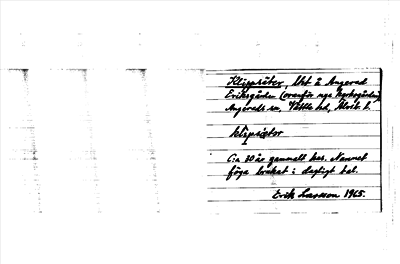 Klippsäter, lht å Angered
Eriksgården (ovanför nya Kyrkogården)
Angereds sn, Vättle hd, Älvsb. l.
klipsiətər
C:a 30 år gammalt hus. Namnet
föga brukat i dagligt tal.
Erik Larsson 1965.